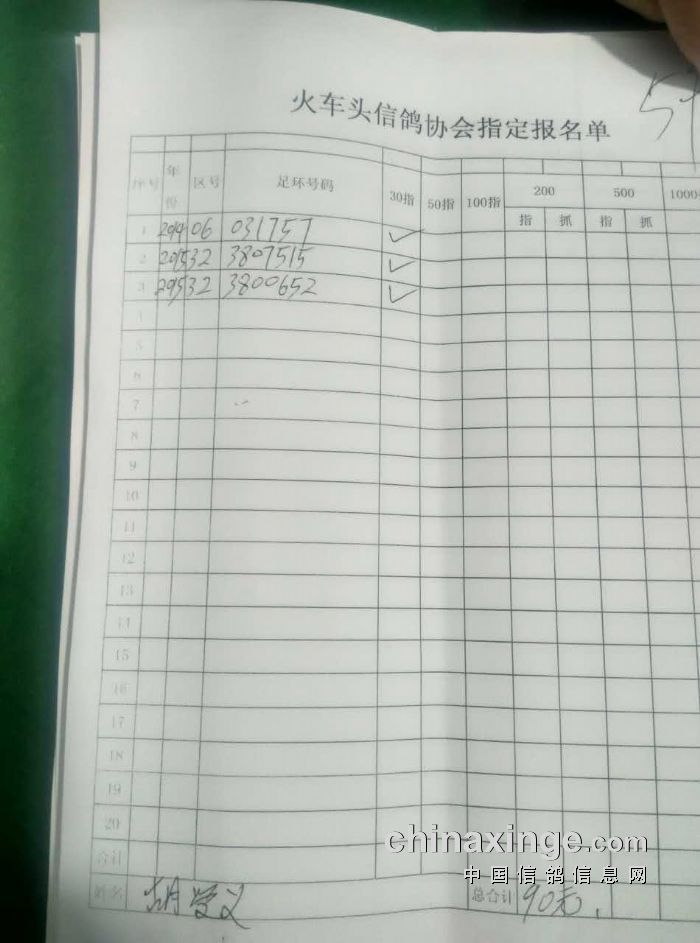 火车头信鸽协会指定报名单
序号 年份 区号 足环号码 30指 50指 100指 200 500 1000
指 抓 指 抓
1 2014 06 031757 ✓
2 2015 32 3807515 ✓
3 2015 32 3800652 ✓
4
5
6
7
8
9
10
11
12
13
14
15
16
17
18
19
20
合计
姓名 胡 义 总合计 90元.
chinaxinge.com
中国信鸽信息网